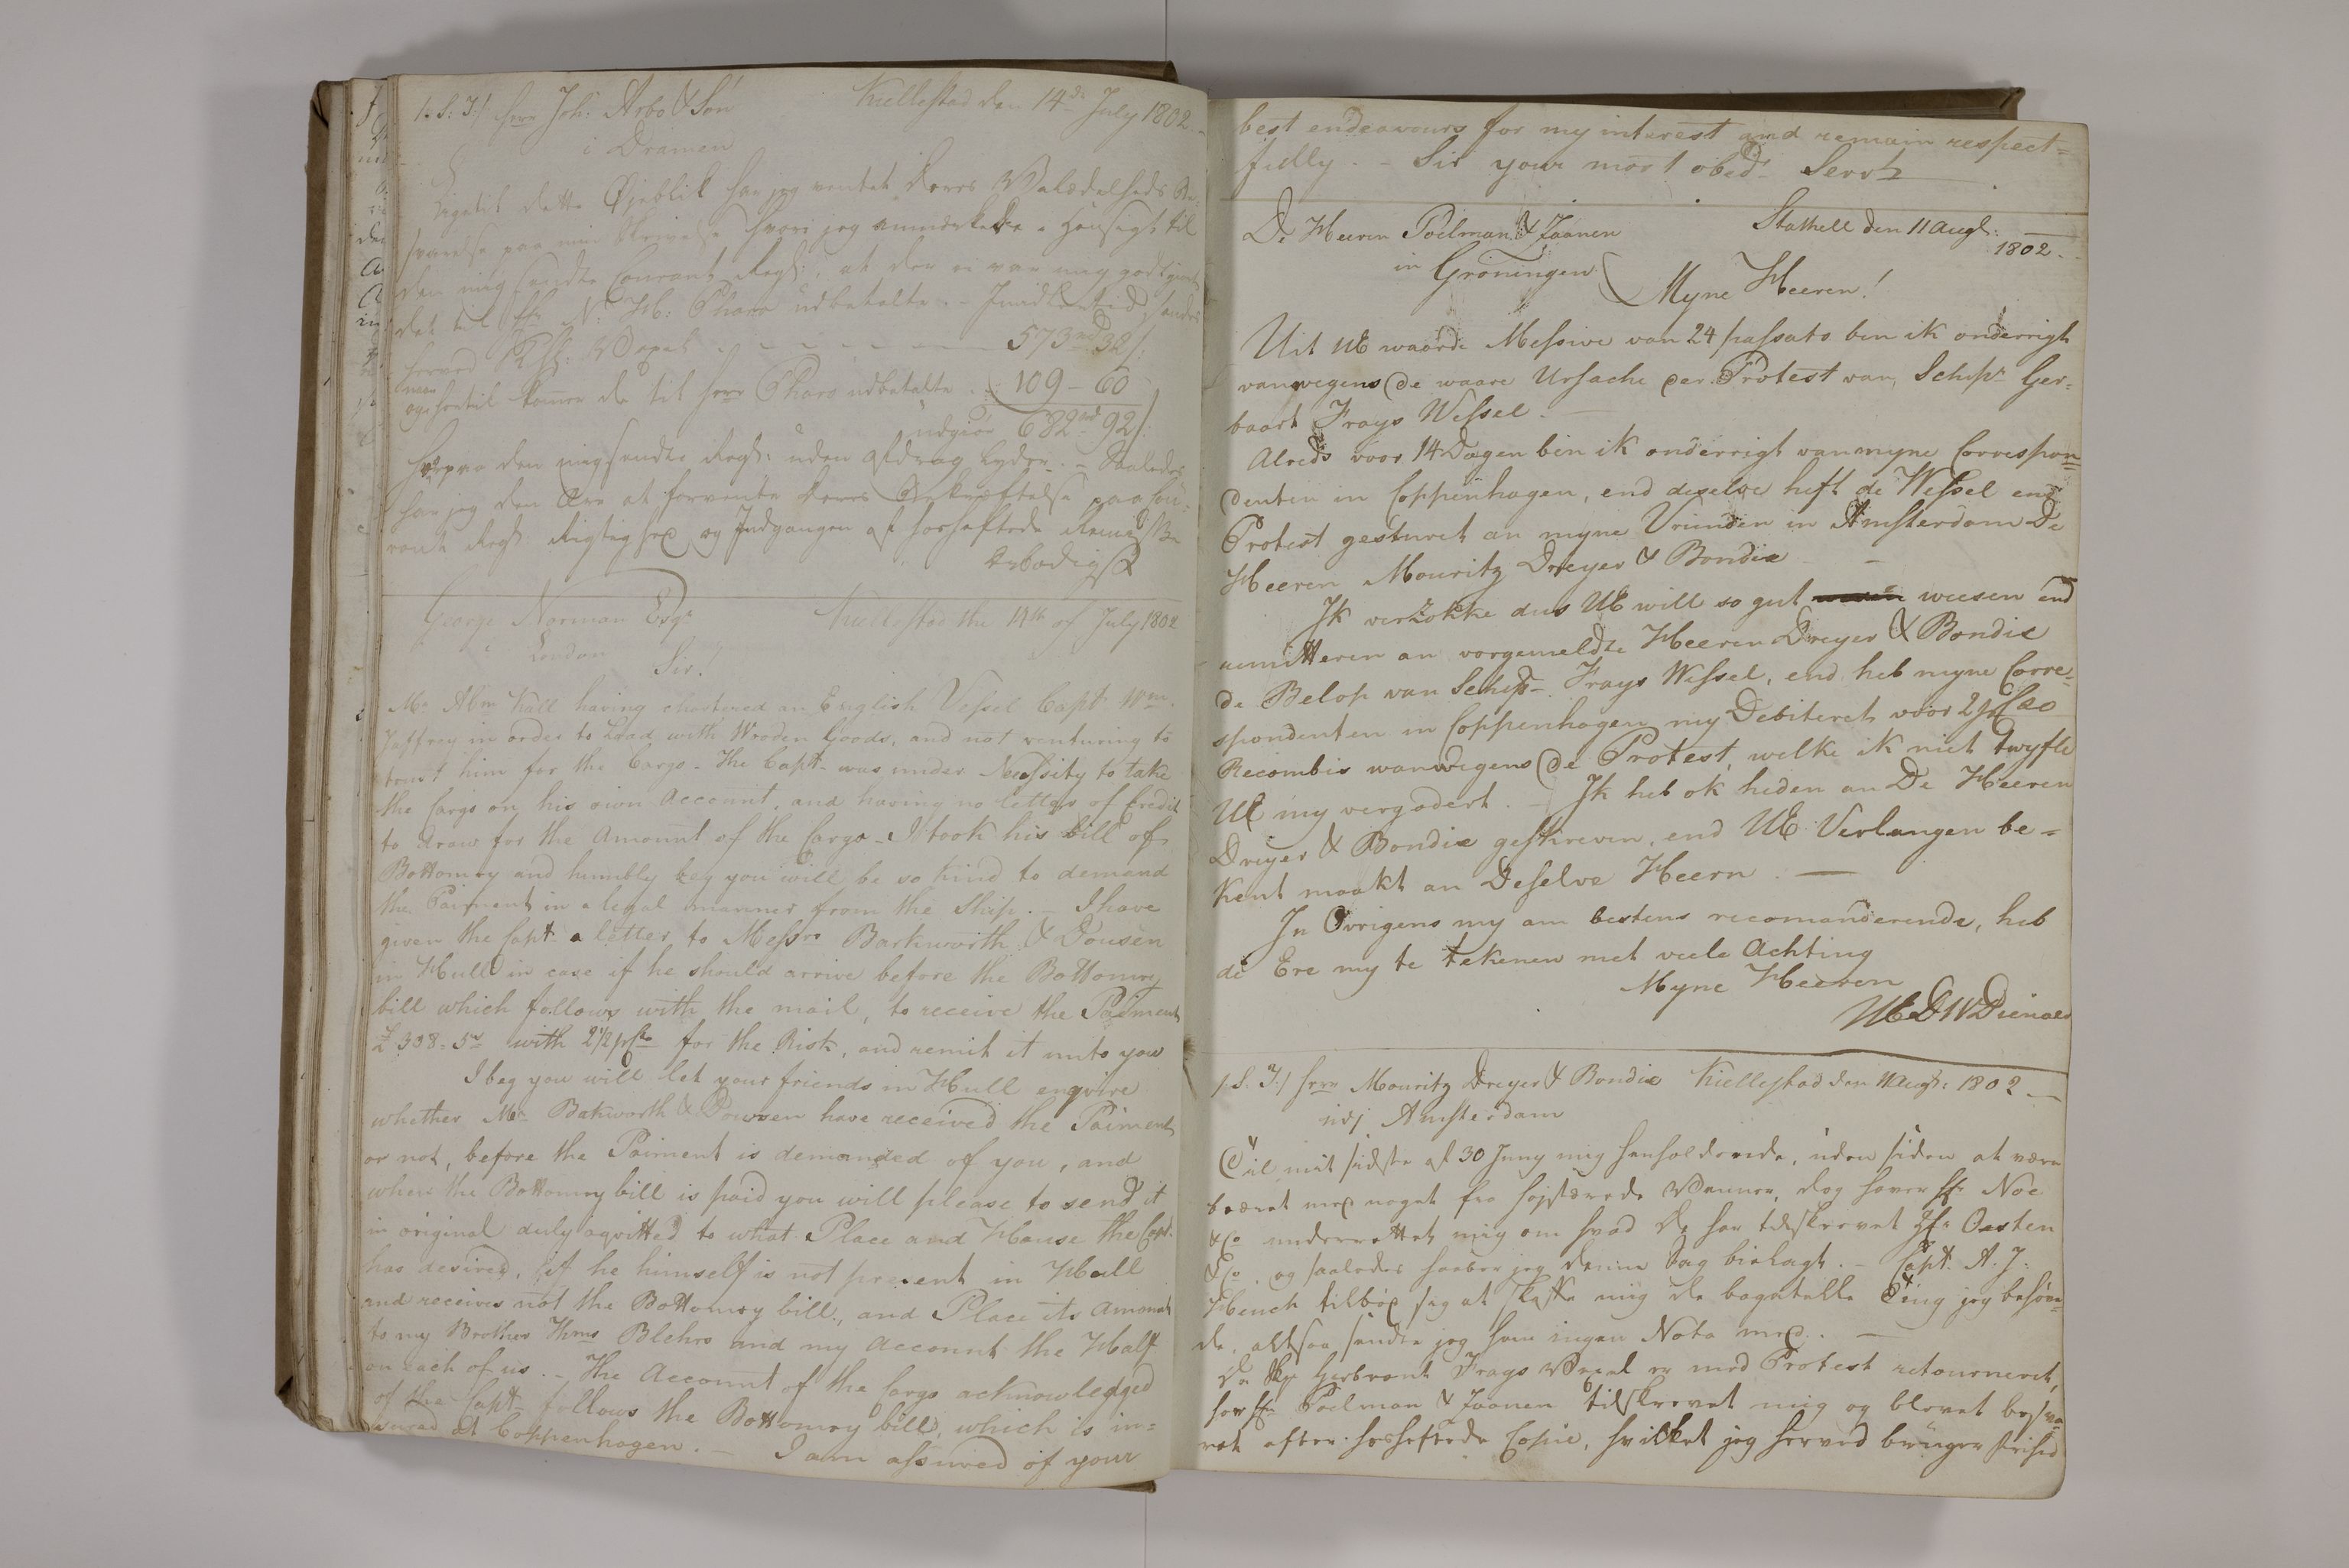 /: S: T:/ Herr Joh: Arbo & Sön Kiellestad den 14de July 1802
i Dramen
Ligetil dette Øyeblik har jeg ventet Deres Velædelheds Be-
svarelse paa min Skrivelse hvori jeg anmærkede i Hensigt til
den mig sendte Courant Regn:, at der ei var mig godtgiort
det til Hr N: H: Pharo udbetalte. - Imidlertid sendes
herved Vexel 573 rd 32 /:
som hertil kommer de til Herr Pharo udbetalte 109 - 60
udgiör 682 rd 92 /:
hvorpaa den mig sendte Regn: uden Afdrag lyder. - Saaledes
har jeg den Ære at forvente Deres Bekræftelse paa Cou-
rant Regn: Rigtighed og Indgangen af hoshæftede
Ærbødigst
George Norman Esqr Kiellestad the 14th of July 1802
London
Sir!
Mr Abm Kall having chartered an English Vessel Capt. Wm.
Jaffrey in order to Load with Wooden Goods, and not venturing to
trust him for the Cargo - The Capt. was under Necessity to take
the Cargo on his own Account, and having no letters of Credit
to draw for the Amount of the Cargo - I took his Bill of
Bottomry and humbly beg you will be so kind to demand
the Paiment in a legal manner from the Ship. - I have
given the Capt. a letter to Messrs Barkworth & Dousen
in Hull in case if he should arrive before the Bottomry
bill which follows with the mail, to receive the Paiment
£ 338 = 5 with 2 1/2 pCto for the Risk, and remit it unto you
I beg you will let your friends in Hull enqvire
whether Mr Bakworth & Dowsen have received the Paiment
or not, before the Paiment is demanded of you, and
where the Bottomry bill is paid you will please to send it
in original duly aqvitted to what Place and House the Capt.
has desired, if he himself is not present in Hull
and receives not the Bottomry bill, and Place its amount
to my Brother Thms Blehrs and my Account the Half
on each of us. - The Account of the Cargo acknowledged
of the Capt. follows the Bottomry bill, which is in-
sured at Coppenhagen. - I am assured of your
best endeavours for my interest and remain respect=
fully. - Sir your most obedt Servt
De Heeren Poelman & Jaanen Stathell den 11 Augt:
1802.
in Groningen
Myne Heeren!
Uit UE waarde Messive van 24 passato ben ik onderrigt
vanwegens de waare Ursache der Protest van Schipr Ger=
baart Frays Wessel. -
Alreds voor 14 Dagen bin ik onderrigt van myne Correspon=
denten in Coppenhagen, end deselve heft de Wessel end
Protest gesturet an myne Vrunden in Amsterdam De
Heeren Mouritz Dreyer & Bondix -
Ik verzokke dus UE will so gut weesen end
remitteren an vorgemeldte Heeren Dreyer & Bondix
de Belop van Schipr. Frays Wessel, end heb myne Corre=
spondenten in Coppenhagen my Debiteret voor 2 pCto
Recombis vanwegens de Protest, welke ik niet twyfle
UE my vergodert. - Ik heb ok heden an De Heeren
Dreyer & Bondix geskreven, end UE Verlangen be=
kent maakt an Deselve Heern. -
In Ovrigens my am bestens recomanderende, heb
de Ere my te tekenen met veele Achting
Myne Heeren
UE DW Dienaer
/: S. T:/ Herr Mouritz Dreyer & Bondix Kiellestad den 11 Augt: 1802 -
udj Amsterdam
Til mit sidste af 30 Juny mig henholdende, uden siden at være
beæret med noget fra höjstærede Venner, dog haver Hr Noe
& Co underrettet mig om hvad De har tilskrevet Hr Oasten
& Co, og saaledes haaber jeg denne Sag bielagt. - Capt. A. J:
Hench tilböd sig at skaffe mig de bagatelle Ting jeg behöve-
de, altsaa sendte jeg ham ingen Nota med. -
Da Sk: Gerbrant Frays Vexel er med Protest retourneret,
har Hr Poelman & Jaanen tilskrevet mig og blevet besva-
ret efter hoshæftede Copie, hvilket jeg herved bruger Frihed